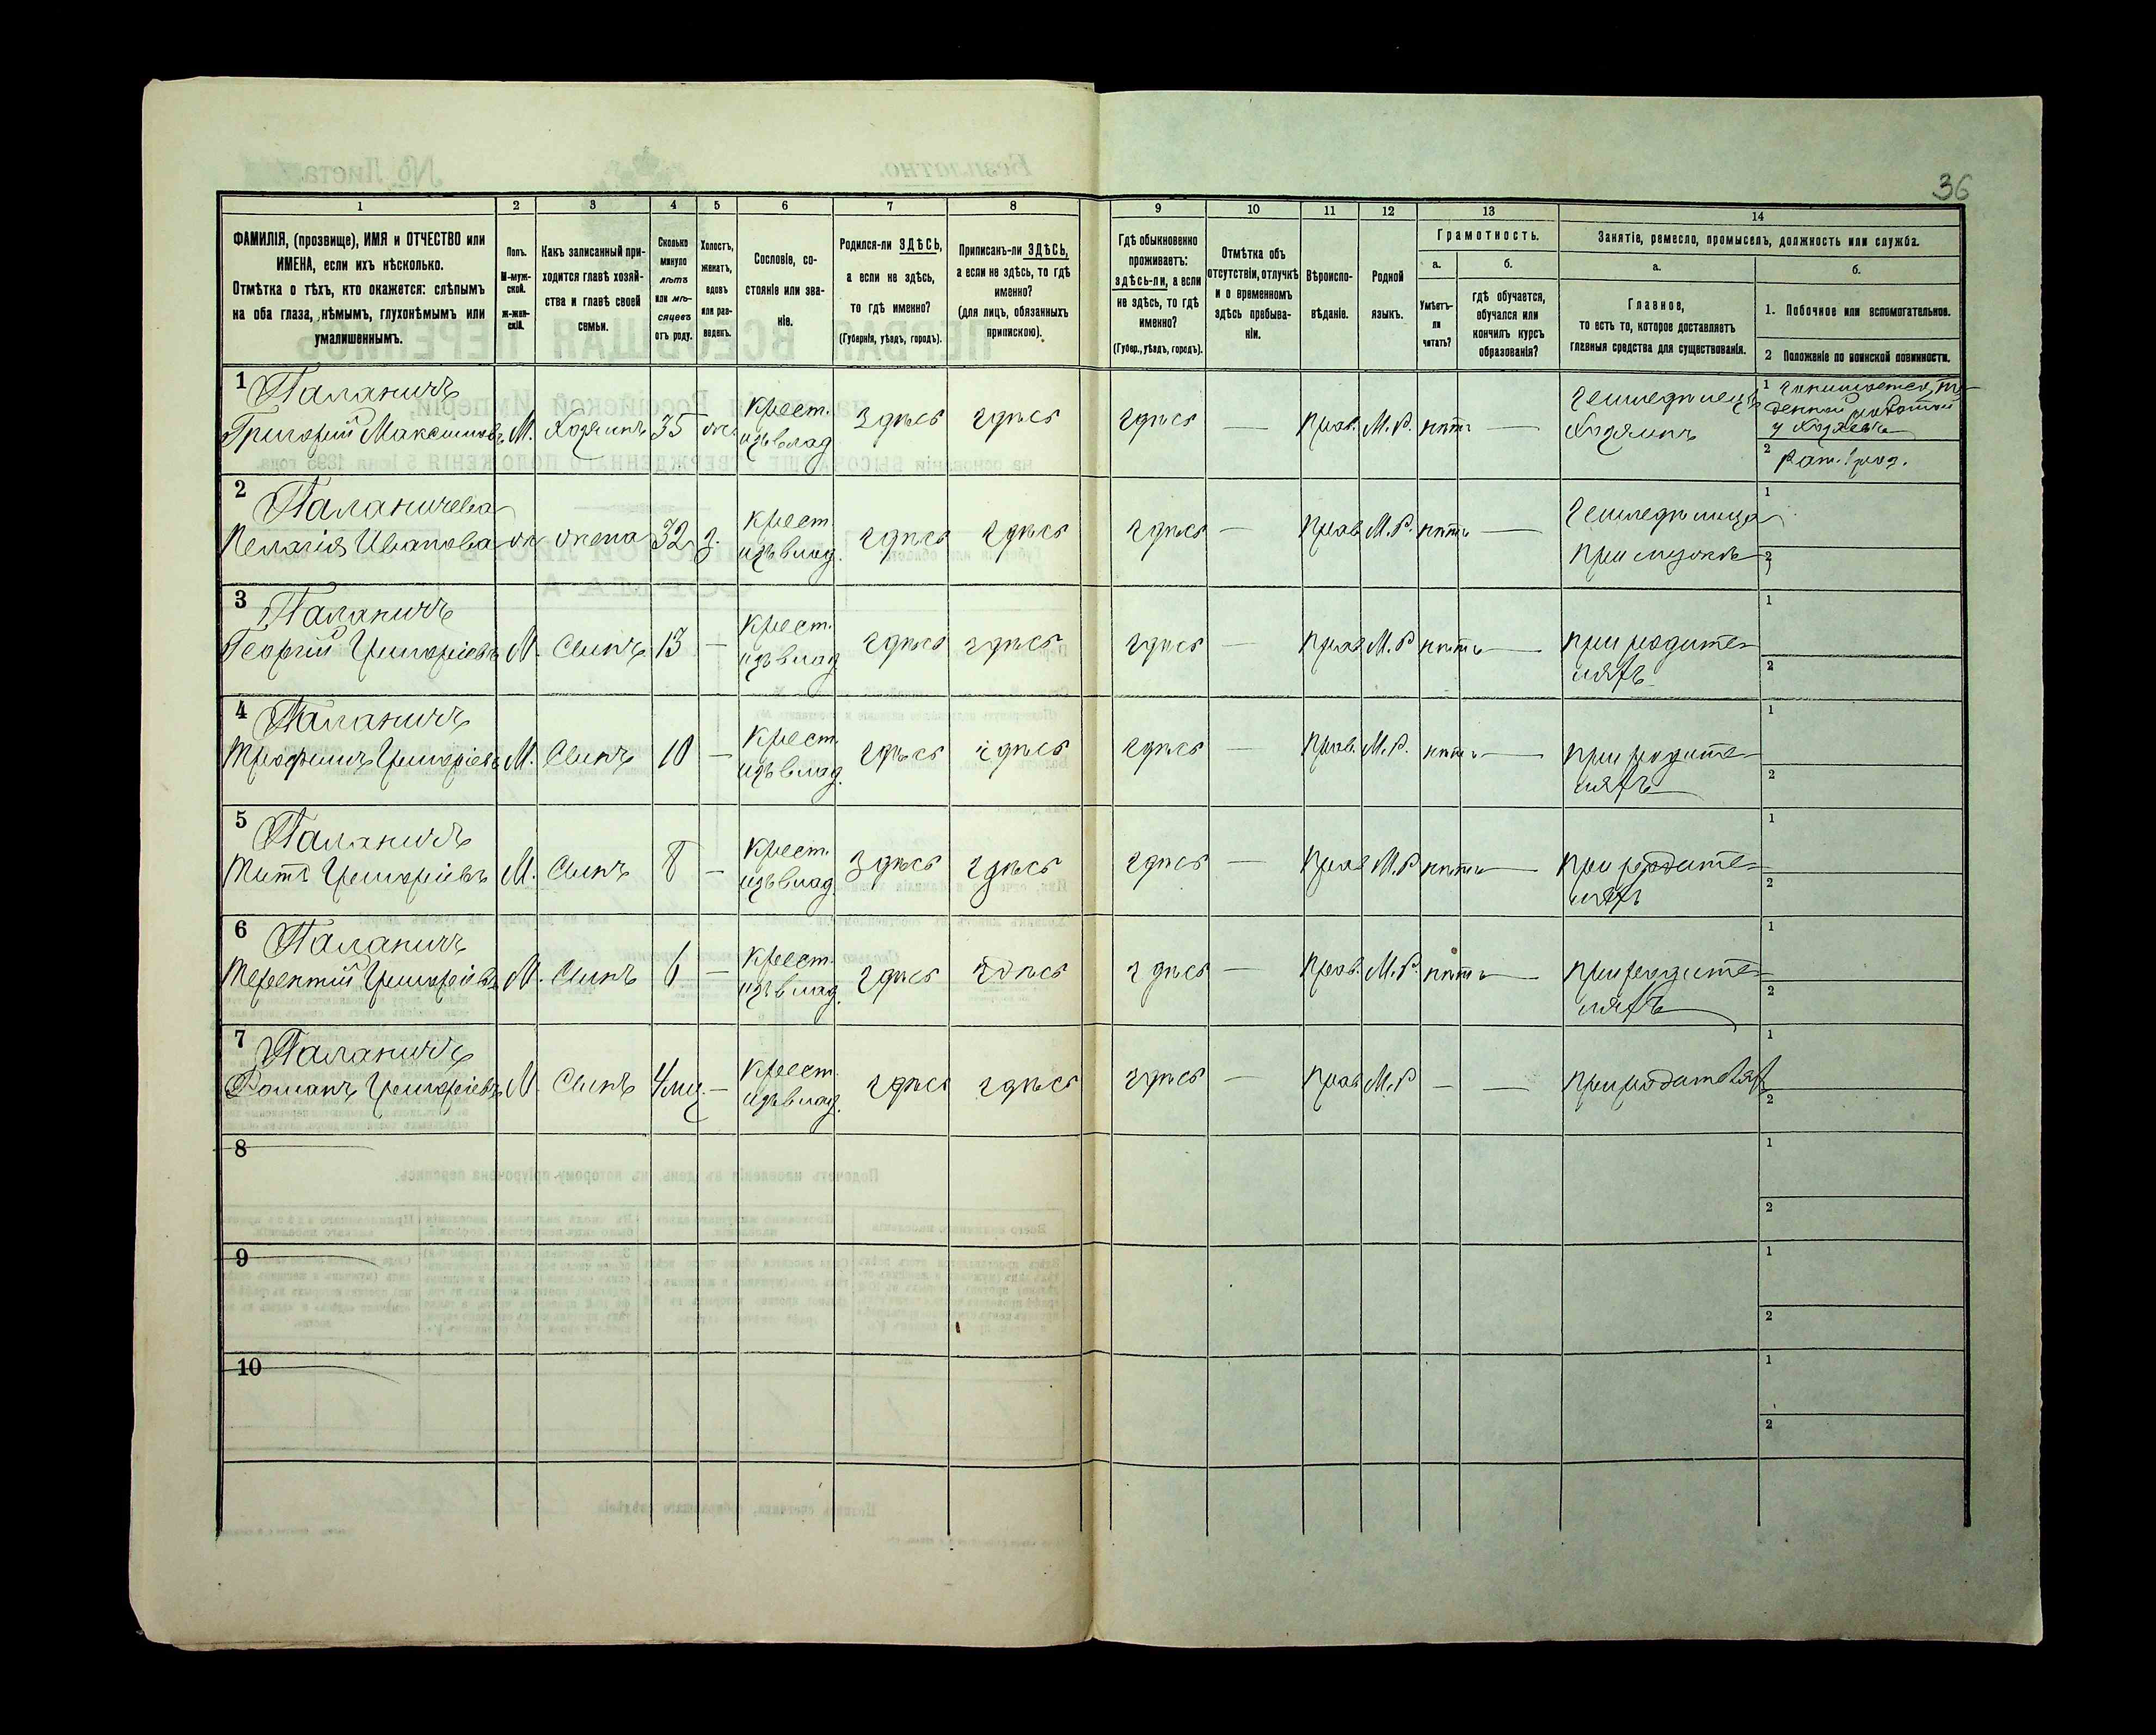 36
1 2 3 4 5 6 7 8 9 10 11 12 13 14
ФАМИЛІЯ, (прозвище), ИМЯ и ОТЧЕСТВО или
ИМЕНА, если ихъ нѣсколько.
Отмѣтка о тѣхъ, кто окажется: слѣпымъ
на оба глаза, нѣмымъ, глухонѣмымъ или
умалишеннымъ.
Полъ.
М-муж-
ской.
ж-жен-
скій.
Какъ записанный при-
ходится главѣ хозяй-
ства и главѣ своей
семьи.
Сколько
минуло
лѣтъ
или мѣ-
сяцевъ
отъ роду.
Холостъ,
женатъ,
вдовъ
или раз-
веденъ.
Сословіе, со-
стояніе или зва-
ніе.
Родился-ли ЗДѢСЬ,
а если не здѣсь,
то гдѣ именно?
(Губернія, уѣздъ, городъ).
Приписанъ-ли ЗДѢСЬ,
а если не здѣсь, то гдѣ
именно?
(для лицъ, обязанныхъ
припискою).
Гдѣ обыкновенно
проживаетъ:
здѣсь-ли, а если
не здѣсь, то гдѣ
именно?
(Губер., уѣздъ, городъ).
Отмѣтка объ
отсутствіи, отлучкѣ
и о временномъ
здѣсь пребыва-
ніи.
Вѣроиспо-
вѣданіе.
Родной
языкъ.
Грамотность.
а.
Умѣетъ-
ли
читать?
б.
гдѣ обучается,
обучался или
кончилъ курсъ
образованія?
Занятіе, ремесло, промыселъ, должность или служба.
а.
Главное,
то есть то, которое доставляетъ
главныя средства для существованія.
б.
1. Побочное или вспомогательное.
2 Положеніе по воинской повинности.
1 Паланичъ
Григорій Максимовъ М. Хозяинъ 35 ж. Крест. изъ влад. Здѣсь здѣсь здѣсь — Прав. М.Р. нѣтъ — Земледѣлецъ
Хозяинъ
1
2
2 Паланичева
Пелагія Иванова ж жена 32 з. Крест. изъ влад. здѣсь здѣсь здѣсь — Прав М.Р. нѣтъ — Земледѣлица
при мужѣ
1
2
3 Паланичъ
Георгій Григоріевъ М. Сынъ 13 — Крест. изъ влад здѣсь здѣсь здѣсь — Прав М.Р нѣтъ — при родите-
ляхъ
1
2
4 Паланичъ
Трофимъ Григоріевъ М. Сынъ 10 — Крест. изъ влад. здѣсь здѣсь здѣсь — Прав. М.Р. нѣтъ — при родите-
ляхъ
1
2
5 Паланичъ
Титъ Григоріевъ М. Сынъ 8 — Крест. изъ влад. Здѣсь здѣсь здѣсь — Прав М.Р нѣтъ — при родите-
ляхъ
1
2
6 Паланичъ
Терентій Григоріевъ М. Сынъ 6 — Крест. изъ влад. здѣсь здѣсь здѣсь — Прав. М.Р. нѣтъ — при родите-
ляхъ
1
2
7 Паланичъ
Романъ Григоріевъ М. Сынъ 4 мц. — Крест. изъ влад. здѣсь здѣсь здѣсь — Прав М.Р — — при родителях
1
2
8
1
2
9
1
2
10
1
2